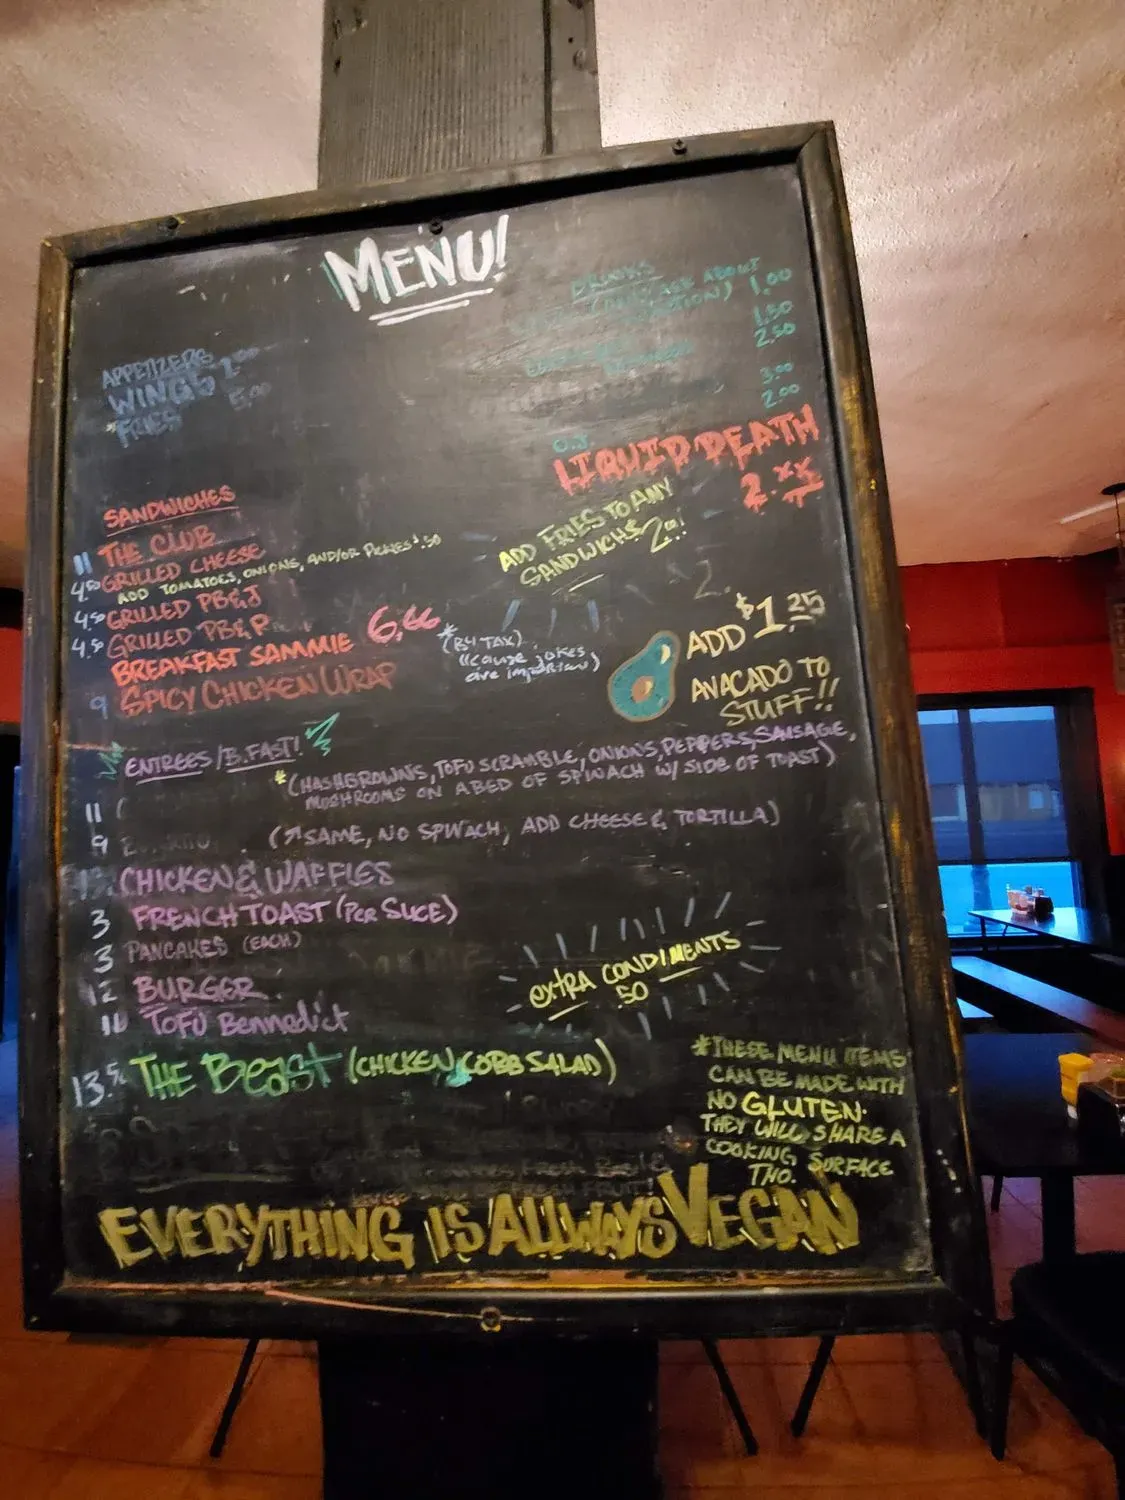 MENU!
DRINKS
1.00
1.50
2.50
3.00
2.00
O.J
LIQUID DEATH
2.xx
APPETIZERS
WINGS
*FRIES 5.00
ADD FRIES TO ANY
SANDWICH $2.00!
SANDWICHES
11 THE CLUB
4.50 GRILLED CHEESE
ADD TOMATOES, ONIONS, AND/OR PICKLES $.50
4.50 GRILLED PB&J
4.50 GRILLED PB&P
BREAKFAST SAMMIE 6.66
*(B4 TAX)
("cause jokes
are important)
9 SPICY CHICKEN WRAP
ADD $1.25
AVACADO TO
STUFF!!
ENTREES/B.FAST!
11 *(HASHBROWNS, TOFU SCRAMBLE, ONIONS, PEPPERS, SAUSAGE,
MUSHROOMS ON A BED OF SPINACH W/ SIDE OF TOAST)
9 (↗SAME, NO SPINACH, ADD CHEESE & TORTILLA)
CHICKEN & WAFFLES
3 FRENCH TOAST (PER SLICE)
3 PANCAKES (EACH)
12 BURGER
11 TOFU Bennedict
extra CONDIMENTS
50
13.50 THE Beast (CHICKEN COBB SALAD)
*THESE MENU ITEMS
CAN BE MADE WITH
NO GLUTEN.
THEY WILL SHARE A
COOKING SURFACE
THO.
EVERYTHING IS ALLWAYS VEGAN